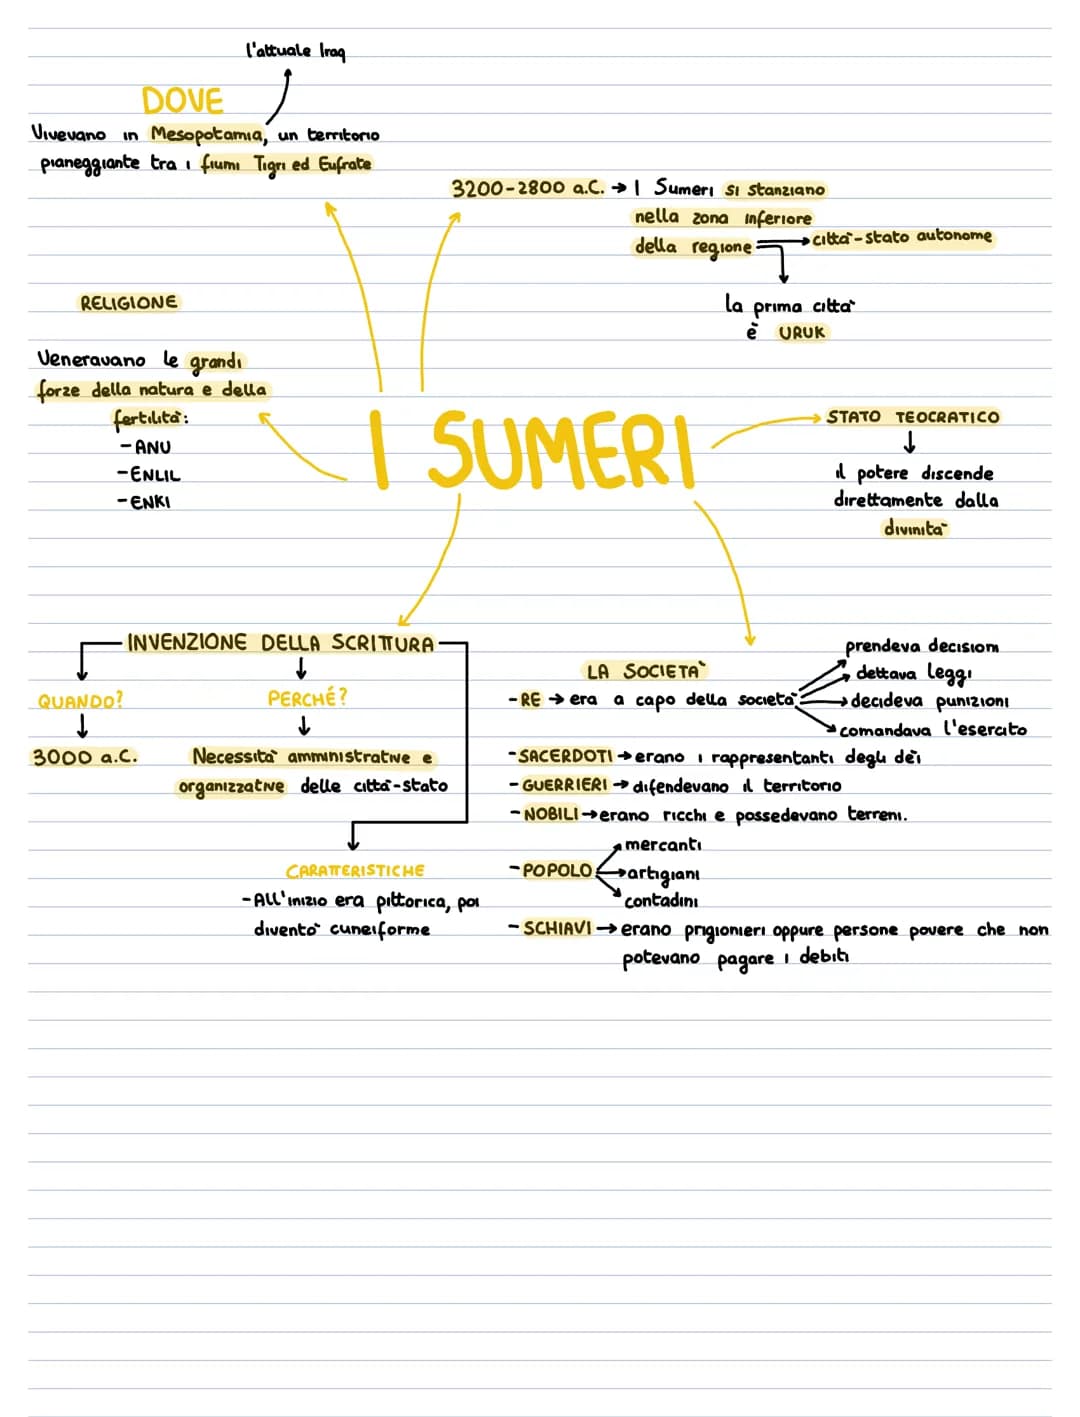 l'attuale Iraq
DOVE
Vivevano in Mesopotamia, un territorio
pianeggiante tra i fiumi Tigri ed Eufrate
3200-2800 a.C. → I Sumeri si stanziano
nella zona inferiore
della regione → città-stato autonome
la prima città
è URUK
RELIGIONE
Veneravano le grandi
forze della natura e della
fertilità:
- ANU
- ENLIL
- ENKI
I SUMERI
STATO TEOCRATICO
il potere discende
direttamente dalla
divinità
INVENZIONE DELLA SCRITTURA
QUANDO?
3000 a.C.
PERCHÉ?
Necessità amministrative e
organizzative delle città-stato
CARATTERISTICHE
- All'inizio era pittorica, poi
diventò cuneiforme
LA SOCIETÀ
- RE → era a capo della società
prendeva decisioni
dettava leggi
decideva punizioni
comandava l'esercito
- SACERDOTI → erano i rappresentanti degli dèi
- GUERRIERI → difendevano il territorio
- NOBILI → erano ricchi e possedevano terreni.
- POPOLO
mercanti
artigiani
contadini
- SCHIAVI → erano prigionieri oppure persone povere che non
potevano pagare i debiti